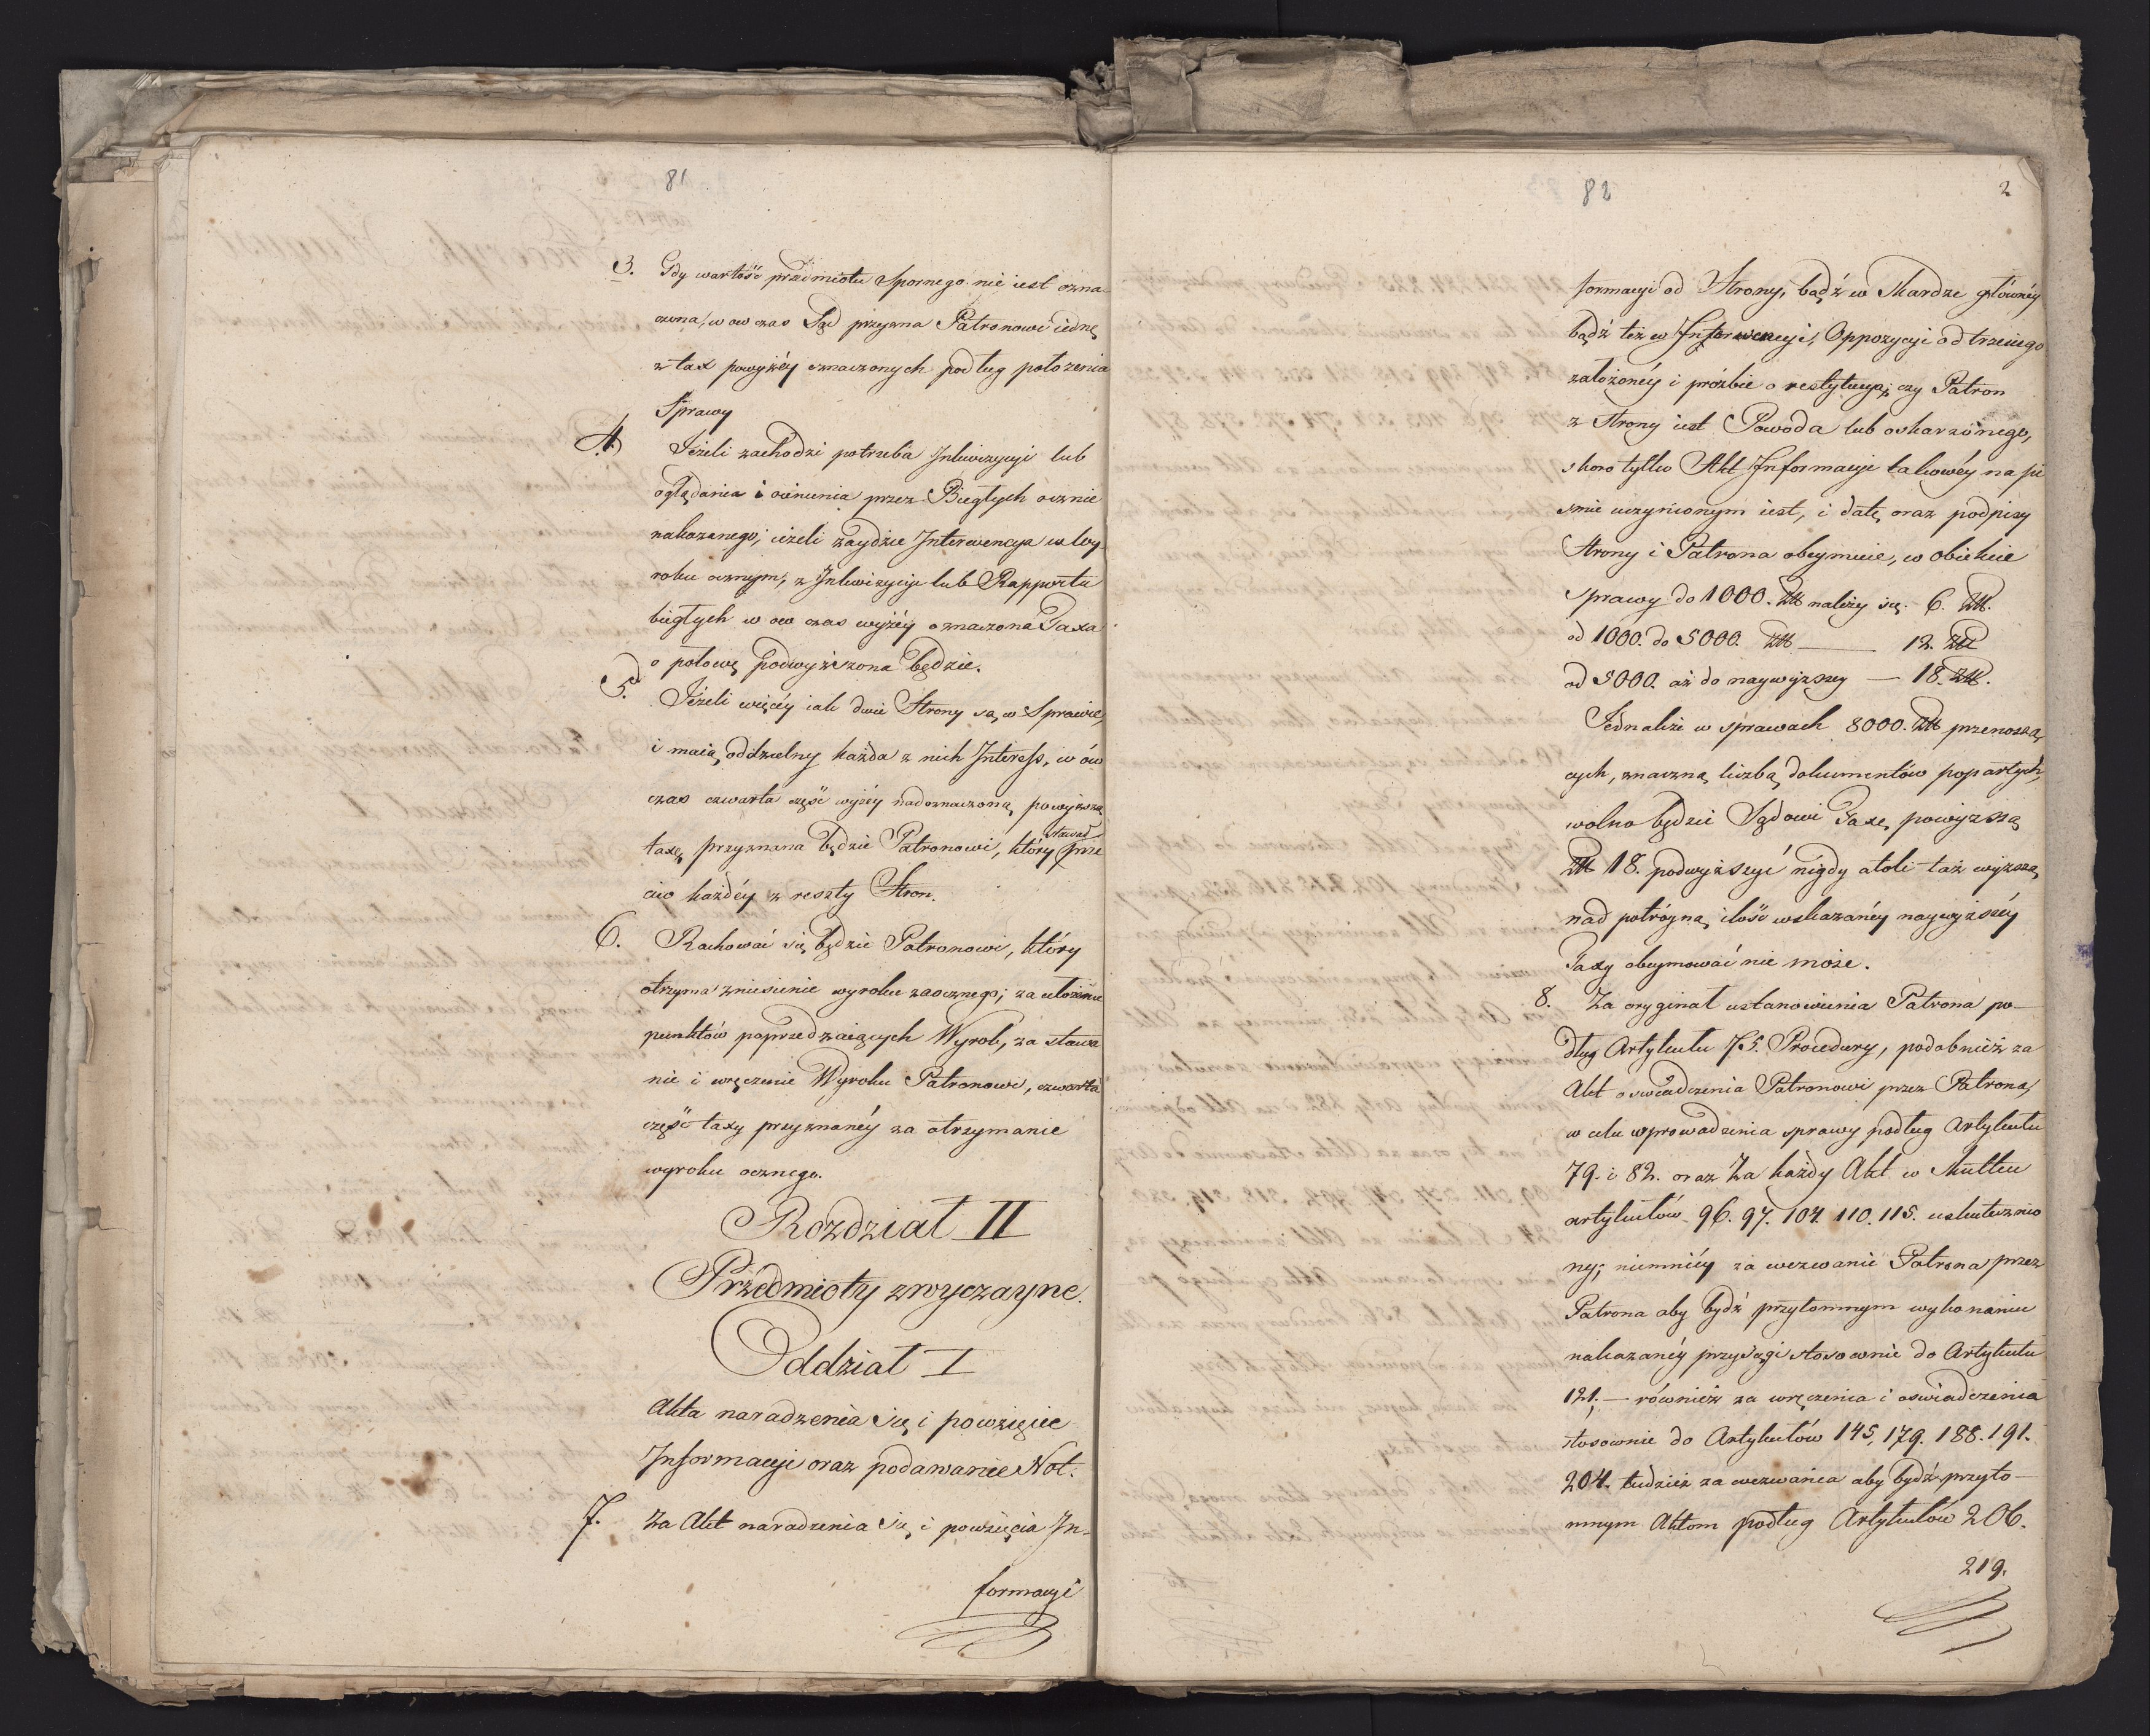 81
3. Gdy wartość przedmiotu spornego nie iest ozna-
czona, w ow czas Sąd przyzna Patronowi iednę
z tax powyżéy oznaczonych podług położenia
Sprawy
4. Jeżeli zachodzi potrzeba Inkwizycyi lub
oglądania i ocenienia przez Biegłych ocznie
nakazanego; ieżeli zaydzie Interwencya w wy-
roku ocznym, z Inkwizycyi lub Rapportu
biegłych w ow czas wyżéy oznaczona Taxa
o połowę podwyższona będzie.
5. Jeżeli więcéy iak dwie Strony są w Sprawie,
i maią oddzielny każda z nich Interess, w ów
czas czwarta część wyżéy nadoznaczoną powyższą
stawał
taxę przyznana będzie Patronowi, który prze
ciw każdéy z reszty Stron.
6. Rachować się będzie Patronowi, który
otrzyma zniesienie wyroku zaocznego; za ułożenie
punktów poprzedzaiących Wyrok, za stawa
nie i wręczenie Wyroku Patronowi, czwarta
część taxy przyznanéy za otrzymanie
wyroku ocznego.
Rozdział II
Przedmioty zwyczayne.
Oddział I
Akta naradzenia się i powzięcie
Informacyi oraz podawanie Not.
7. Za Akt naradzenia się i powzięcia In-
formacyi
82
2
formacyi od Strony, bądź w Skardze głównéy
bądź też w Interwencyi, Oppozycyi od trzeciego
założonéy i prośbie o restytucyą; czy Patron
z Strony iest Powoda lub oskarżonego,
skoro tylko Akt Informacyi takowéy na pi
śmie uczynionym iest, i datę oraz podpisy
Strony i Patrona obeymuie, w obiekcie
sprawy do 1000. Zł należy się. 6. Zł.
od 1000. do 5000. Zł — 12. Zł
od 5000. aż do naywyższey — 18. Zł.
Jednakże w sprawach 8000. Zł przenoszą
cych, znaczną liczbą dokumentów popartych,
wolno będzie Sądowi Taxę powyższą
Zł 18. podwyższyć nigdy atoli taż wyższa
nad potróyną ilość wskazanéy naywyższéy
Taxy obeymować nie może.
8. Za oryginał ustanowienia Patrona po-
dług Artykułu 75. Procedury, podobnież za
Akt oświadczenia Patronowi przez Patrona,
w celu wprowadzenia sprawy podług Artykułu
79. i 82. oraz Za każdy Akt w Skutku
artykułów 96. 97. 104. 110. 115. uskutecznio
ny; niemniéy za wezwanie Patrona przez
Patrona aby bydź przytomnym wykonaniu
nakazanéy przysięgi stosownie do Artykułu
121. — również za wręczenia i oświadczenia
stosownie do Artykułów 145, 179. 188. 191.
204. tudzież za wezwania aby bydź przyto-
mnym Aktom podług Artykułów 206.
219.